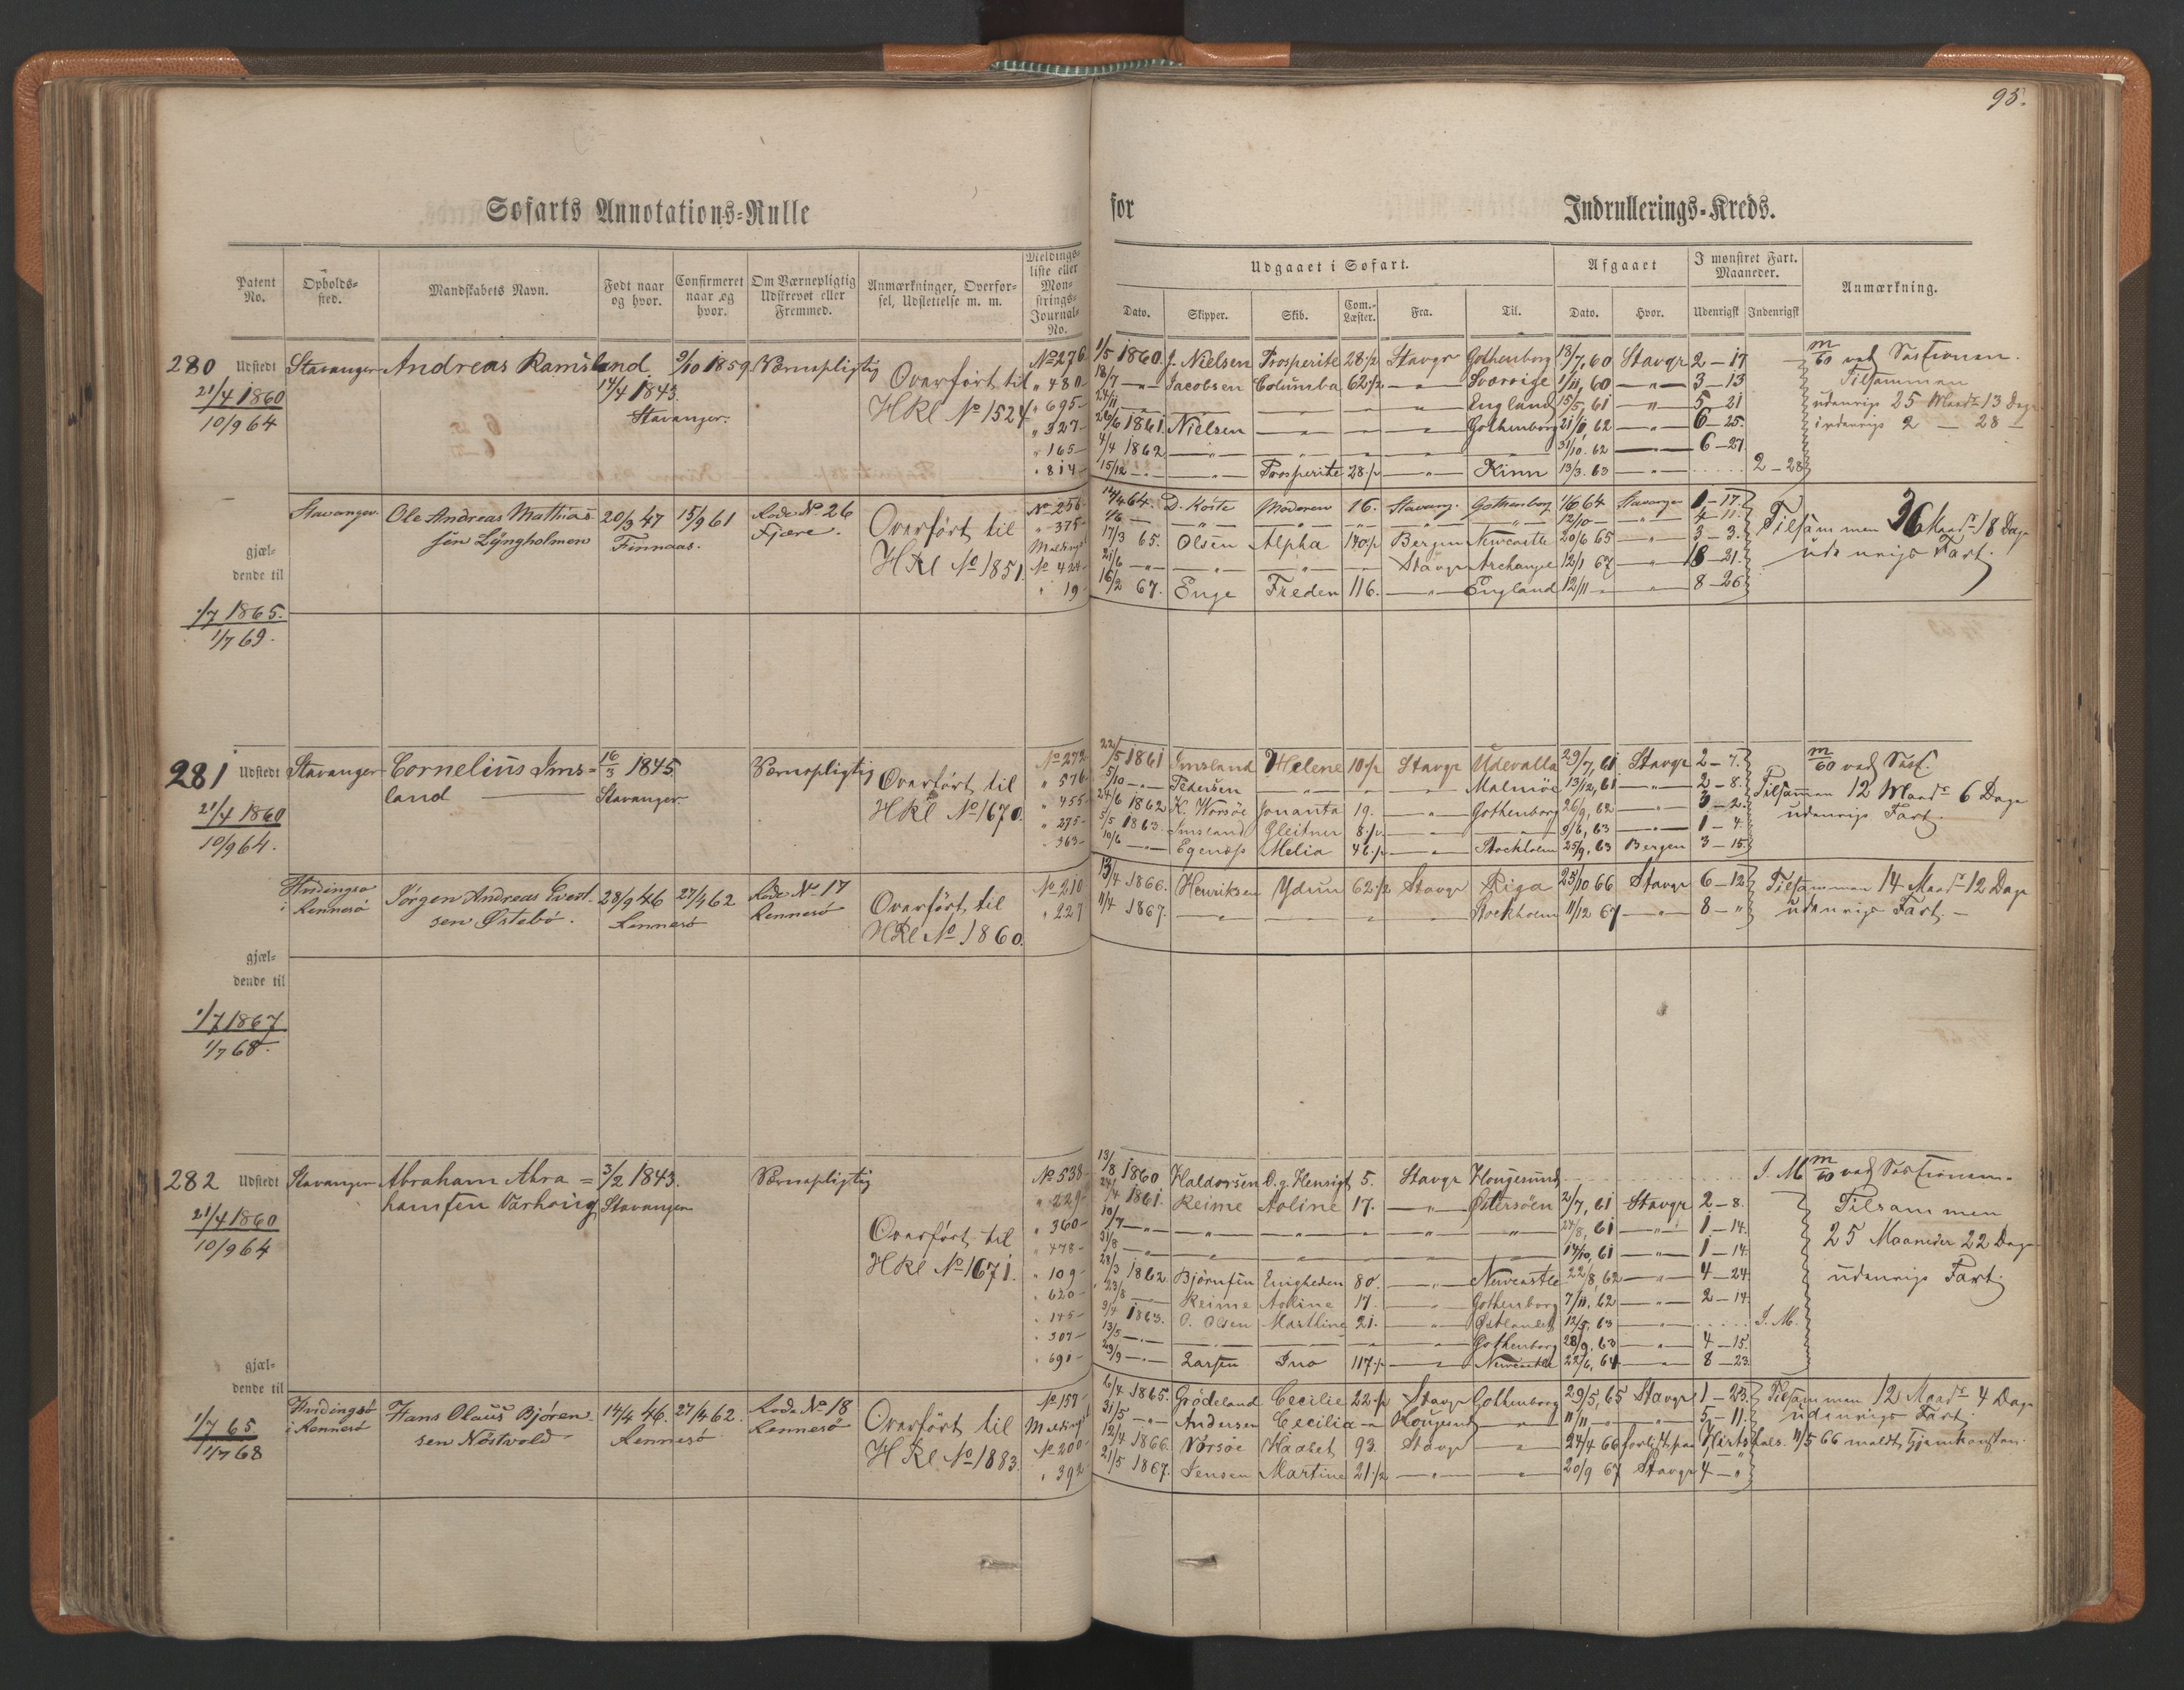 95.
Søfarts Annotations-Rulle for Indrullerings-Kreds.
Patent No. Opholdssted. Mandskabets Navn. Født naar og hvor. Confirmeret naar og hvor. Om Værnepligtig Udskrevet eller Fremmed. Anmærkninger, Overførsel, Udslettelse m. m. Meldingsliste eller Mønstrings-Journal-No.
Udgaaet i Søfart. Afgaaet I mønstret Fart. Maaneder. Anmærkning.
Dato. Skipper. Skib. Com.-Læster. Fra. Til. Dato. Hvor. Udenrigsk Indenrigsk
280 Udstedt Stavanger Andreas Ramsland 9/10 1859 Værnepligtig
21/4 1860
10/9 64
14/4 1843.
Stavanger.
Overført til
HRl No 1524
No 276 1/5 1860. J. Nielsen Prosperite 28 1/2 Stavgr Gothenborg 18/7, 60 Stavgr 2 – 17
" 480 18/7 — Jacobsen Columba 62 1/2 — " — Sverrige 1/11, 60 — " — 3 – 13
" 695 24/11 England 15/5, 61 — " — 5 – 21
" 327 20/6 1861. Nielsen — " — Gothenborg 21/11 62 — " — 6 – 25.
" 165 4/4 1862 — " — 31/10. 62 — " — 6 – 27
" 814 15/12 — — " — Prosperite 28 1/2 — " — Kinn 13/3. 63 — " — 2 – 28
m/60 ved Sessionen.
Tilsammen
udenrigs 25 Maadr 13 Dage
indenrigs 2 — 28 —
Stavanger Ole Andreas Mathiassen Lyngholmen 20/3 47 Finnaas. 15/9 61 Rode No 26 Fjære.
Overført til
HRl No 1851.
No 256 14/4 64. D. Koste Moderen 16. Stavang. Gothenborg 1/6 64 Stavanger 1 – 17.
" 375 1/6 — — " — 12/10 — 4 – 11.
Meldings 17/3 65. Olsen Alpha 140 1/2 Bergen Newcastle 20/6 65 — " — 3 – 3.
No 424 21/6 — — " — Stavgr Archangel 12/1 67 — " — 18 – 21.
" 19 16/2 67. Enge Freden 116. — " — England 12/11 — — " — 8 – 26
Tilsammen 36 Maadr 18 Dage
udenrigs Fart.
gjældende til
1/7 1865.
1/7 69.
281 Udstedt Stavanger Cornelius Imsland 16/3 1845 Stavanger Værnepligtig
21/4 1860
10/9 64.
Overført til
HRl No 1670.
No 272 22/5 1861 Imsland Helene 10 1/2 Stavgr Udevalla 29/7, 61 Stavgr 2 – 7.
" 576 5/10 — Pedersen — " — Malmöe 13/12, 61 — " — 2 – 8.
" 455 24/6 1862 K. Worsöe Jonanta 19. — " — Gothenborg 26/9, 62 — " — 3 – 2.
" 275 5/5 1863. Imsland Gleitner 8 1/2 — " — 9/6, 63 — " — 1 – 4.
" 363 10/6 — Egenæs Melia 46 1/2 — " — Stockholm 25/9, 63 Bergen 3 – 15
m/60 ved Sess.
Tilsammen 12 Maadr 6 Dage
udenrigs Fart.
Hvidingsø i Rennesö Jørgen Andreas Evertsen Østebö. 28/9 46 Rennesö 27/4 62 Rode No 17 Rennesö
Overført til
HRl No 1860.
No 210 13/4 1866. Henriksen Ydun 62 1/2 Stavgr Riga 25/10 66 Stavgr 6 – 12
" 227 11/4 1867. — " — Stockholm 11/12 67 — " — 8 – "
Tilsammen 14 Maadr 12 Dage
udenrigs Fart. —
gjældende til
1/7 1867
1/7 68.
282 Udstedt Stavanger Abraham Abrahamsen Varhoug 3/2 1843. Stavanger Værnepligtig
21/4 1860
10/9 64
Overført til
HRl No 1671.
No 538 13/8 1860 Haldorsen D. g. Hensigt 5. Stavgr Hougesund
" 229 24/4 1861. Reime Aoline 17. — " — Østersöen 2/7, 61 Stavgr 2 – 8.
" 360 10/7 — — " — 27/8, 61 — " — 1 – 14.
" 478 31/8 — — " — 14/10, 61 — " — 1 – 14
" 109 28/3 1862 Björnsen Enigheden 80. — " — Newcastle 22/8, 62 — " — 4 – 24.
" 620 23/8 — Reime Aoline 17. — " — Gothenborg 7/11, 62 — " — 2 – 14
" 145 9/4 1863. O. Olsen Marthine 21. — " — Østlandet 12/5, 63 — " — I. M.
" 307 13/5 — — " — Gothenborg 28/9, 63 — " — 4 – 15.
" 691 29/9 — Larsen Juo 117 1/2 — " — Newcastle 22/6, 64 — " — 8 – 23.
I. M. m/60 ved Sessionen.
Tilsammen
25 Maaneder 22 Dage
udenrigs Fart.
gjældende til
1/7 65
1/7 68
Hvidingsö i Rennesö Hans Olaus Bjørensen Nöstvold 14/4 46. Rennesö 27/4 62. Rode No 18 Rennesö
Overført til
HRl No 1883.
No 157 6/4 1865. Grödeland Cecilie 22 1/2 Stavgr Gothenborg 29/5, 65 Stavgr 1 – 23.
Meldings 31/5 — Andersen Cecilia — Hougesund — " — 11/11 — — " — 5 – 11.
No 200 12/4 1866. Vorsöe Haabet 93. Stavgr — " — 24/4 66 forlist paa Hirtshals. 11/5 66 meldt hjemkomsten.
" 392 21/5 1867. Jensen Martine 21 1/2 — " — 20/9 67 Stavgr 4 – "
Tilsammen 12 Maadr 4 Dage
udenrigs Fart